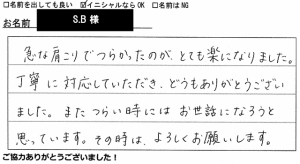 □名前を出しても良い ☑イニシャルならOK □名前はNG
お名前 S.B 様
急な肩こりでつらかったのが、とても楽になりました。
丁寧に対応していただき、どうもありがとうござい
ました。またつらい時にはお世話になろうと
思っています。その時は、よろしくお願いします。
ご協力ありがとうございました！